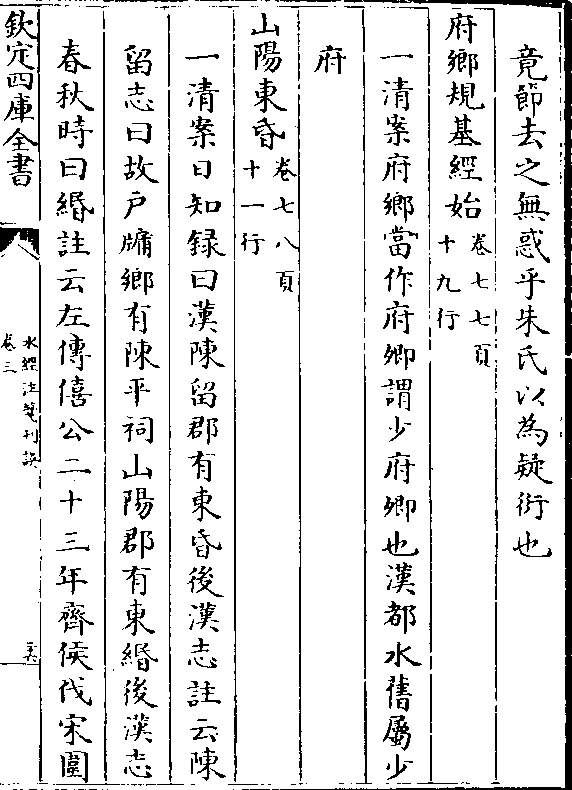 竟節去之無惑乎朱氏以為疑衍也
府鄉規基經始卷七七頁十九行
一清案府鄉當作府卿謂少府卿也漢都水舊屬少
府
山陽東昏卷七八頁十一行
一清案日知録曰漢陳留郡有東昏後漢志註云陳
留志曰故戶牖鄉有陳平祠山陽郡有東緡後漢志
春秋時曰緡註云左傳僖公二十三年齊侯伐宋圍
欽定四庫全書
水經注箋刊誤
卷三